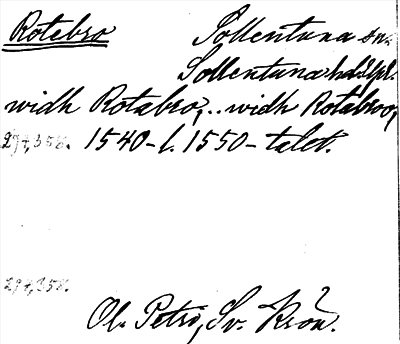 Rotebro Sollentuna sn.
Sollentuna hd. Upl.
widh Rotabro, .. widh Rotabroo,
297, 358. 1540-l. 1550-talet.
297, 358.
Ol. Petri, Sv. Krön.